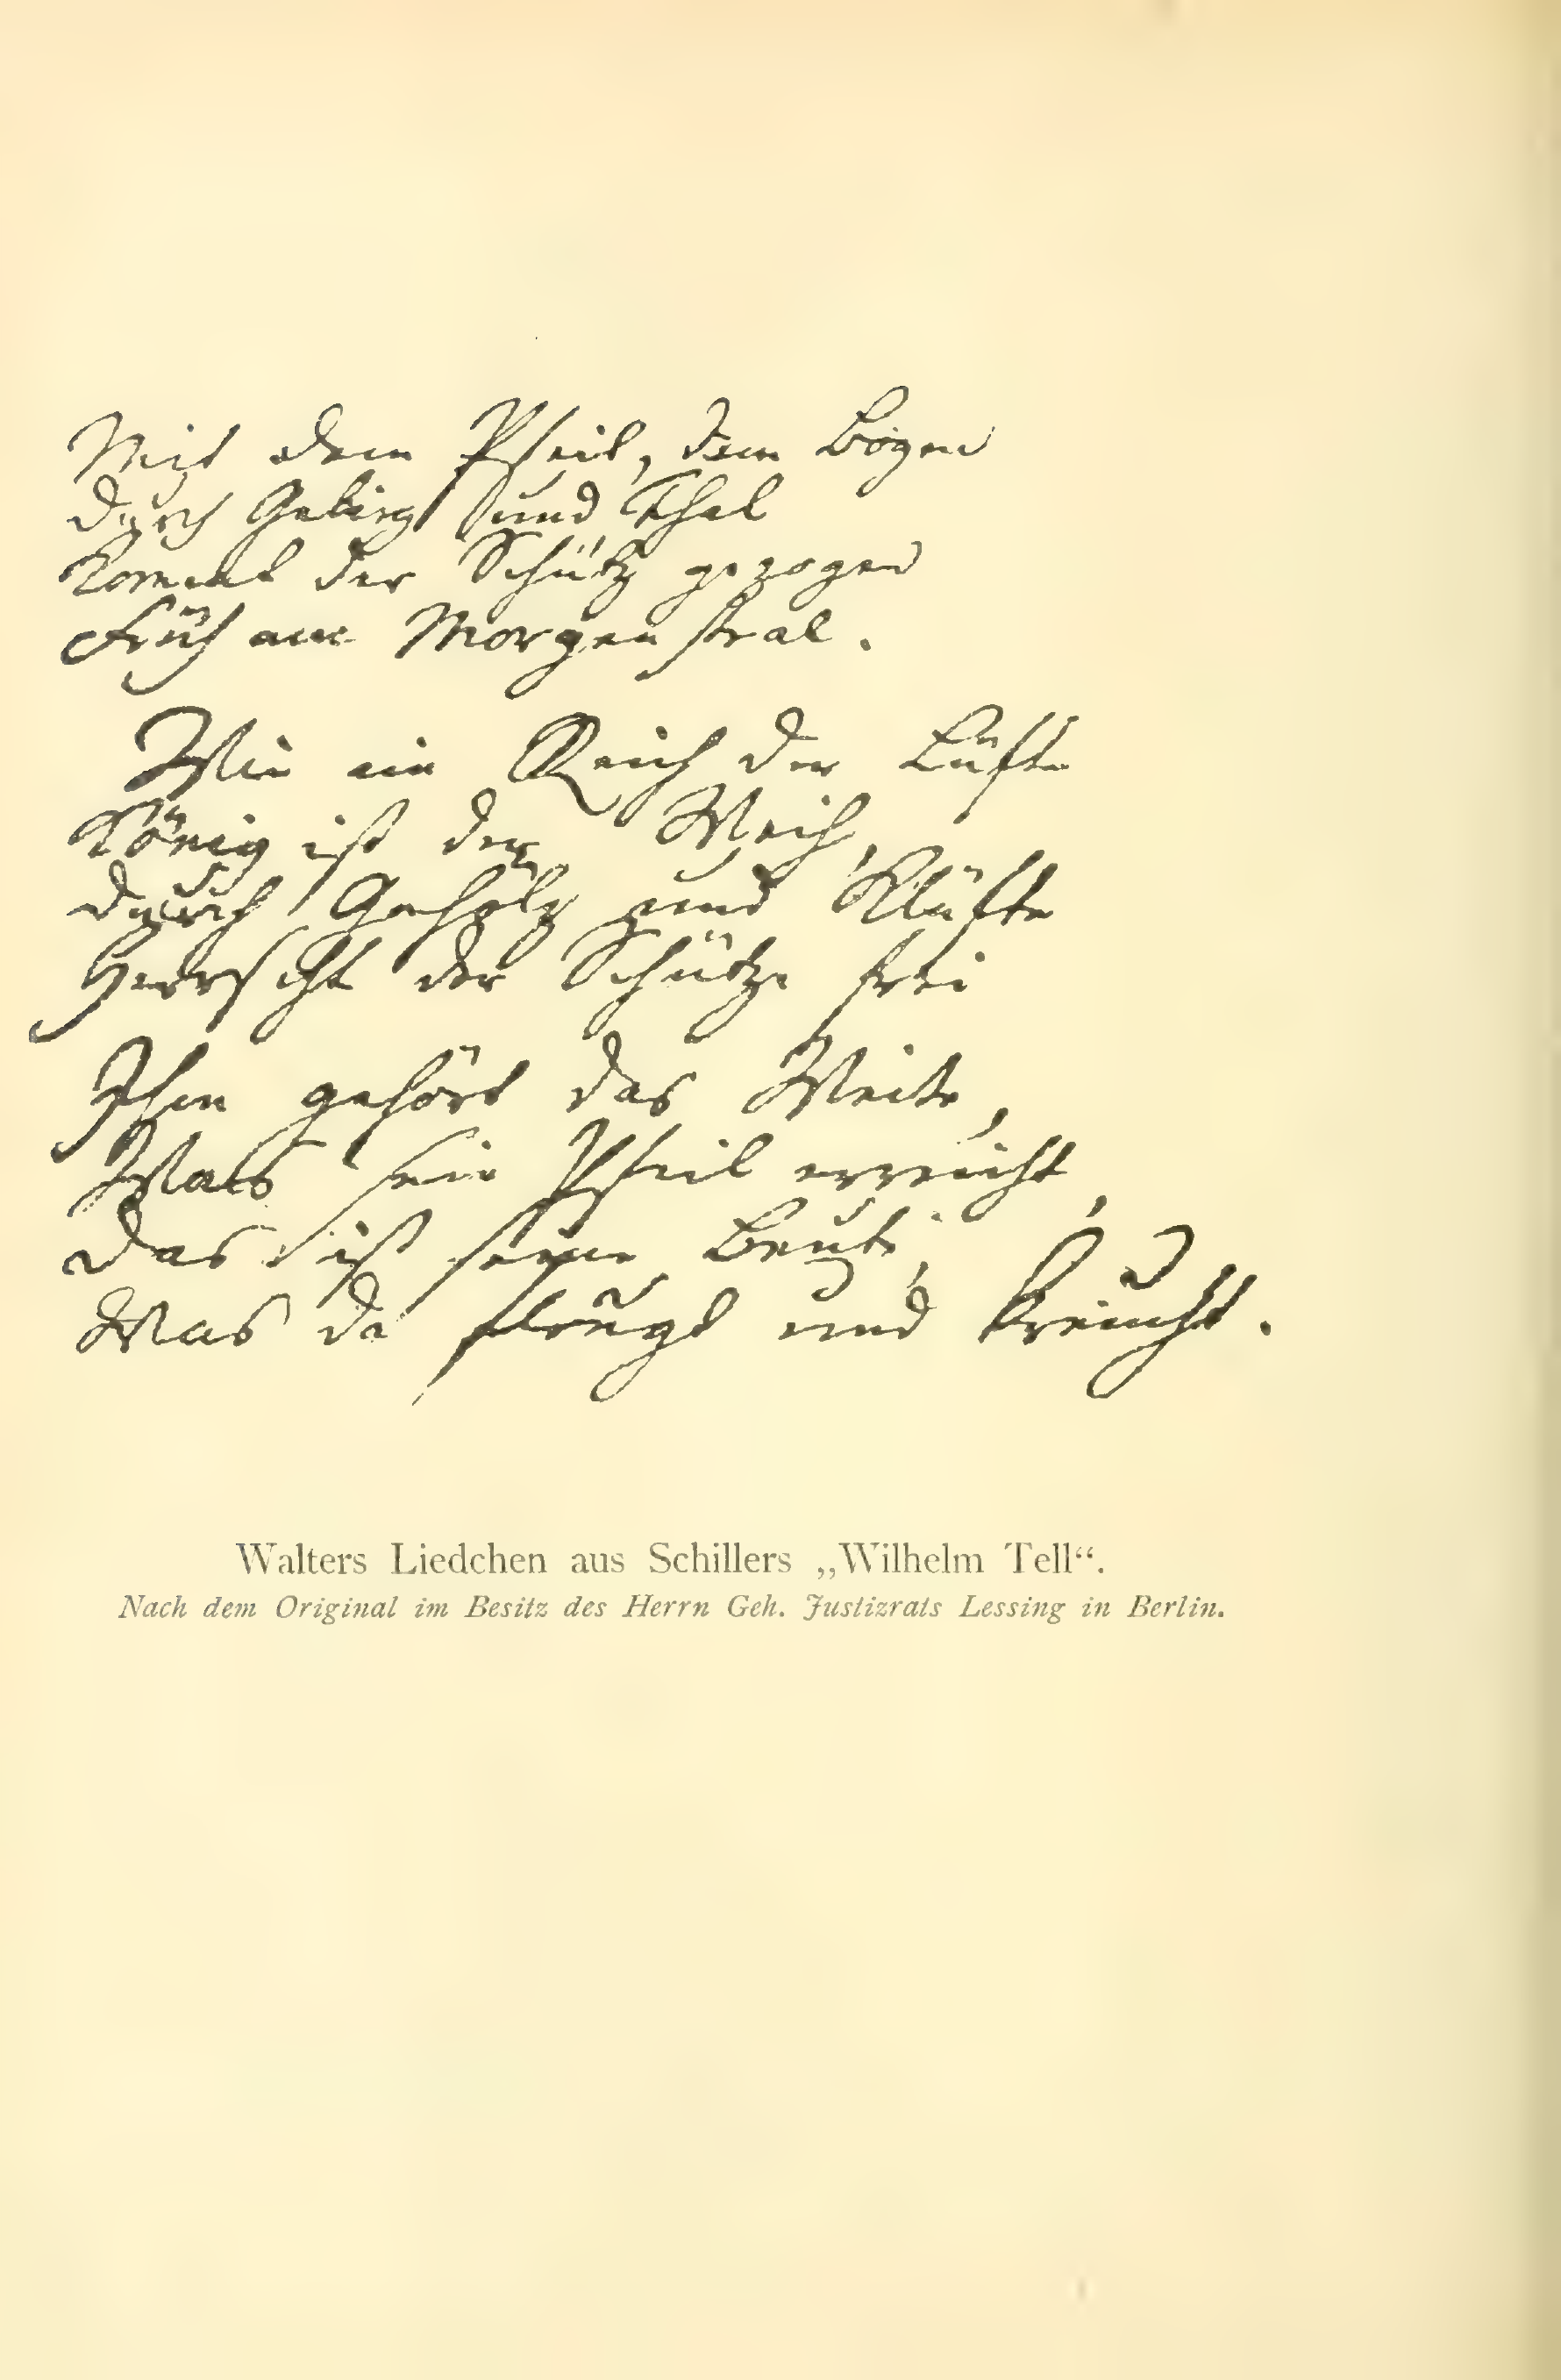 Mit dem Pfeil, dem Bogen
Durch Gebirg und Thal
Kommt der Schütz gezogen
Früh am Morgenstral.
Wie ein Reich der Lüfte
König ist der Weih,
Durch Gehölz und Klüfte
Herrscht der Schütze frei
Ihm gehört das Weite,
Was sein Pfeil erreicht,
Das ist seine Beute,
Was da fleugt und kreucht.
Walters Liedchen aus Schillers „Wilhelm Tell“.
Nach dem Original im Besitz des Herrn Geh. Justizrats Lessing in Berlin.